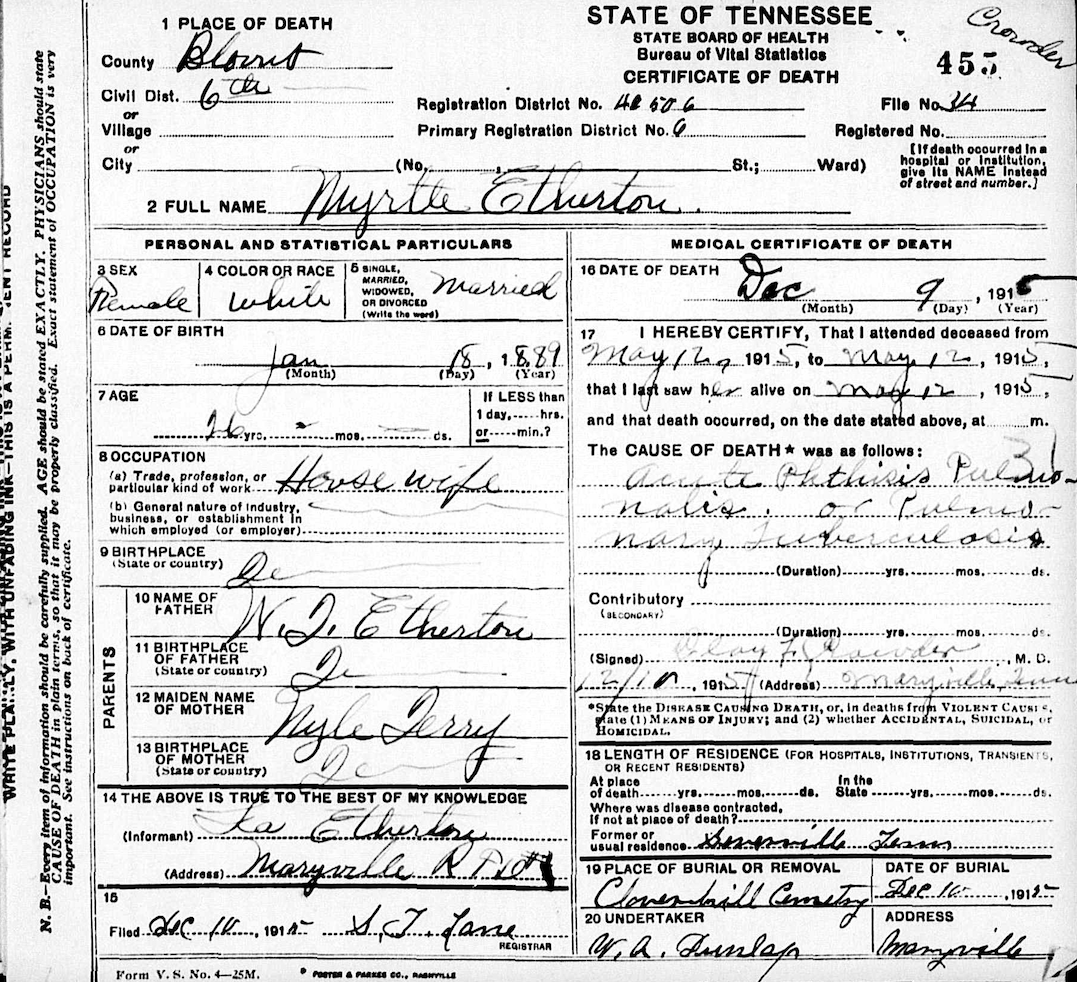 STATE OF TENNESSEE
STATE BOARD OF HEALTH
Bureau of Vital Statistics
CERTIFICATE OF DEATH
Crowder
455
1 PLACE OF DEATH
County Blount
Civil Dist. 6th
or
Village
or
City (No. , St.; Ward)
Registration District No.
Primary Registration District No. 6
File No. 34
Registered No.
[If death occurred in a
hospital or institution,
give its NAME instead
of street and number.]
2 FULL NAME Myrtle Etherton.
PERSONAL AND STATISTICAL PARTICULARS
3 SEX
Female
4 COLOR OR RACE
White
5 SINGLE,
MARRIED,
WIDOWED,
OR DIVORCED
(Write the word)
Married
6 DATE OF BIRTH
Jan 18, 1889
(Month) (Day) (Year)
7 AGE
26 yrs. mos. ds.
If LESS than
1 day, hrs.
or min.?
8 OCCUPATION
(a) Trade, profession, or
particular kind of work House wife
(b) General nature of Industry,
business, or establishment in
which employed (or employer)
9 BIRTHPLACE
(State or country)
PARENTS
10 NAME OF
FATHER
Etherton
11 BIRTHPLACE
OF FATHER
(State or country)
12 MAIDEN NAME
OF MOTHER
13 BIRTHPLACE
OF MOTHER
(State or country)
14 THE ABOVE IS TRUE TO THE BEST OF MY KNOWLEDGE
(Informant) Etherton
(Address) Maryville R F D #1
15
Filed Dec 10, 1915
REGISTRAR
MEDICAL CERTIFICATE OF DEATH
16 DATE OF DEATH
Dec 9, 1915
(Month) (Day) (Year)
17 I HEREBY CERTIFY, That I attended deceased from
May 12, 1915, to May 12, 1915,
that I last saw her alive on May 12, 1915,
and that death occurred, on the date stated above, at m.
The CAUSE OF DEATH* was as follows:
31
Acute Phthisis Pulmo-
nalis. or Pulmo-
nary Tuberculosis
(Duration) yrs. mos. ds.
Contributory
(SECONDARY)
(Duration) yrs. mos. ds.
(Signed) Crowder, M. D.
12/10, 1915 (Address) Maryville, Tenn
*State the DISEASE CAUSING DEATH, or, in deaths from VIOLENT CAUSES,
state (1) MEANS OF INJURY; and (2) whether ACCIDENTAL, SUICIDAL, or
HOMICIDAL.
18 LENGTH OF RESIDENCE (FOR HOSPITALS, INSTITUTIONS, TRANSIENTS,
OR RECENT RESIDENTS)
At place
of death yrs. mos. ds.
In the
State yrs. mos. ds.
Where was disease contracted,
If not at place of death?
Former or
usual residence Tenn
19 PLACE OF BURIAL OR REMOVAL
Cloverhill Cemetry
DATE OF BURIAL
Dec 10, 1915
20 UNDERTAKER
W. A. Dunlap
ADDRESS
Maryville
Form V. S. No. 4—25M.
FOSTER & PARKES CO., NASHVILLE
WRITE PLAINLY, WITH UNFADING INK—THIS IS A PERMANENT RECORD
N. B.—Every item of information should be carefully supplied. AGE should be stated EXACTLY. PHYSICIANS should state
CAUSE OF DEATH in plain terms, so that it may be properly classified. Exact statement of OCCUPATION is very
important. See instructions on back of certificate.